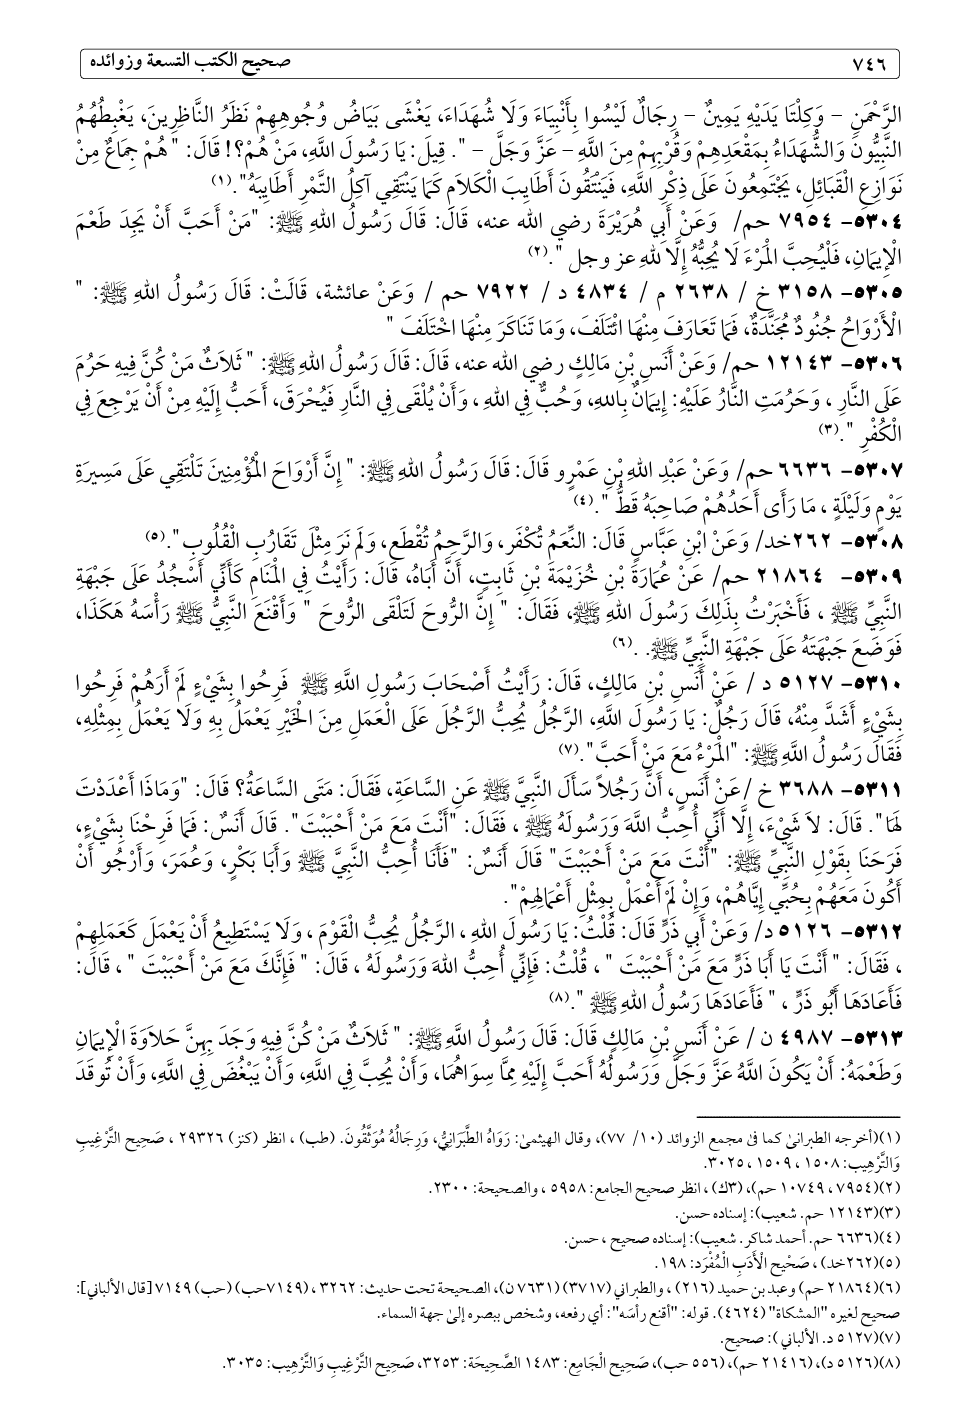 ٧٤٦ صحيح الكتب التسعة وزوائده
الرَّحْمَنِ – وَكِلْتَا يَدَيْهِ يَمِينٌ – رِجَالٌ لَيْسُوا بِأَنْبِيَاءَ وَلَا شُهَدَاءَ، يَغْشَى بَيَاضُ وُجُوهِهِمْ نَظَرُ النَّاظِرِينَ، يَغْبِطُهُمُ
النَّبِيُّونَ وَالشُّهَدَاءُ بِمَقْعَدِهِمْ وَقُرْبِهِمْ مِنَ اللَّهِ – عَزَّ وَجَلَّ – ". قِيلَ: يَا رَسُولَ اللَّهِ، مَنْ هُمْ؟! قَالَ: "هُمْ جِمَاعٌ مِنْ
نَوَازِعِ الْقَبَائِلِ، يَجْتَمِعُونَ عَلَى ذِكْرِ اللَّهِ، فَيَنْتَقُونَ أَطَايِبَ الْكَلَامِ كَمَا يَنْتَقِي آكِلُ التَّمْرِ أَطَايِبَهُ".(١)
٥٣٠٤- ٧٩٥٤ حم/ وَعَنْ أَبِي هُرَيْرَةَ رضي الله عنه، قَالَ: قَالَ رَسُولُ اللهِ ﷺ: "مَنْ أَحَبَّ أَنْ يَجِدَ طَعْمَ
الْإِيمَانِ، فَلْيُحِبَّ الْمَرْءَ لَا يُحِبُّهُ إِلَّا لِلهِ عز وجل ".(٢)
٥٣٠٥- ٣١٥٨ خ / ٢٦٣٨ م / ٤٨٣٤ د / ٧٩٢٢ حم / وَعَنْ عائشة، قَالَتْ: قَالَ رَسُولُ اللهِ ﷺ: "
الْأَرْوَاحُ جُنُودٌ مُجَنَّدَةٌ، فَمَا تَعَارَفَ مِنْهَا ائْتَلَفَ، وَمَا تَنَاكَرَ مِنْهَا اخْتَلَفَ "
٥٣٠٦- ١٢١٤٣ حم/ وَعَنْ أَنَسِ بْنِ مَالِكٍ رضي الله عنه، قَالَ: قَالَ رَسُولُ اللهِ ﷺ: " ثَلَاثٌ مَنْ كُنَّ فِيهِ حَرُمَ
عَلَى النَّارِ ، وَحَرُمَتِ النَّارُ عَلَيْهِ: إِيمَانٌ بِاللهِ، وَحُبٌّ فِي اللهِ ، وَأَنْ يُلْقَى فِي النَّارِ فَيُحْرَقَ، أَحَبُّ إِلَيْهِ مِنْ أَنْ يَرْجِعَ فِي
الْكُفْرِ ".(٣)
٥٣٠٧- ٦٦٣٦ حم/ وَعَنْ عَبْدِ اللهِ بْنِ عَمْرٍو قَالَ: قَالَ رَسُولُ اللهِ ﷺ: " إِنَّ أَرْوَاحَ الْمُؤْمِنِينَ تَلْتَقِي عَلَى مَسِيرَةِ
يَوْمٍ وَلَيْلَةٍ ، مَا رَأَى أَحَدُهُمْ صَاحِبَهُ قَطُّ ".(٤)
٥٣٠٨- ٢٦٢خد/ وَعَنْ ابْنِ عَبَّاسٍ قَالَ: النِّعَمُ تُكْفَر، وَالرَّحِمُ تُقْطَع، وَلَم نَر مِثْلَ تَقَارُبِ الْقُلُوبِ".(٥)
٥٣٠٩- ٢١٨٦٤ حم/ عَنْ عُمَارَةَ بْنِ خُزَيْمَةَ بْنِ ثَابِتٍ، أَنَّ أَبَاهُ، قَالَ: رَأَيْتُ فِي الْمَنَامِ كَأَنِّي أَسْجُدُ عَلَى جَبْهَةِ
النَّبِيِّ ﷺ ، فَأَخْبَرْتُ بِذَلِكَ رَسُولَ اللهِ ﷺ، فَقَالَ: " إِنَّ الرُّوحَ لَتَلْقَى الرُّوحَ " وَأَقْنَعَ النَّبِيُّ ﷺ رَأْسَهُ هَكَذَا،
فَوَضَعَ جَبْهَتَهُ عَلَى جَبْهَةِ النَّبِيِّ ﷺ. .(٦)
٥٣١٠- ٥١٢٧ د / عَنْ أَنَسِ بْنِ مَالِكٍ، قَالَ: رَأَيْتُ أَصْحَابَ رَسُولِ اللَّهِ ﷺ فَرِحُوا بِشَيْءٍ لَمْ أَرَهُمْ فَرِحُوا
بِشَيْءٍ أَشَدَّ مِنْهُ، قَالَ رَجُلٌ: يَا رَسُولَ اللَّهِ، الرَّجُلُ يُحِبُّ الرَّجُلَ عَلَى الْعَمَلِ مِنَ الْخَيْرِ يَعْمَلُ بِهِ وَلَا يَعْمَلُ بِمِثْلِهِ،
فَقَالَ رَسُولُ اللَّهِ ﷺ: "الْمَرْءُ مَعَ مَنْ أَحَبَّ".(٧)
٥٣١١- ٣٦٨٨ خ /عَنْ أَنَسٍ، أَنَّ رَجُلاً سَأَلَ النَّبِيَّ ﷺ عَنِ السَّاعَةِ، فَقَالَ: مَتَى السَّاعَةُ؟ قَالَ: "وَمَاذَا أَعْدَدْتَ
لَهَا". قَالَ: لاَ شَيْءَ، إِلَّا أَنِّي أُحِبُّ اللَّهَ وَرَسُولَهُ ﷺ ، فَقَالَ: "أَنْتَ مَعَ مَنْ أَحْبَبْتَ". قَالَ أَنَسٌ: فَمَا فَرِحْنَا بِشَيْءٍ،
فَرَحَنَا بِقَوْلِ النَّبِيِّ ﷺ: "أَنْتَ مَعَ مَنْ أَحْبَبْتَ" قَالَ أَنَسٌ: "فَأَنَا أُحِبُّ النَّبِيَّ ﷺ وَأَبَا بَكْرٍ، وَعُمَرَ، وَأَرْجُو أَنْ
أَكُونَ مَعَهُمْ بِحُبِّي إِيَّاهُمْ، وَإِنْ لَمْ أَعْمَلْ بِمِثْلِ أَعْمَالِهِمْ".
٥٣١٢- ٥١٢٦ د/ وَعَنْ أَبِي ذَرٍّ قَالَ: قُلْتُ: يَا رَسُولَ اللهِ ، الرَّجُلُ يُحِبُّ الْقَوْمَ ، وَلَا يَسْتَطِيعُ أَنْ يَعْمَلَ كَعَمَلِهِمْ
، فَقَالَ: " أَنْتَ يَا أَبَا ذَرٍّ مَعَ مَنْ أَحْبَبْتَ " ، قُلْتُ: فَإِنِّي أُحِبُّ اللهَ وَرَسُولَهُ ، قَالَ: " فَإِنَّكَ مَعَ مَنْ أَحْبَبْتَ " ، قَالَ:
فَأَعَادَهَا أَبُو ذَرٍّ ، " فَأَعَادَهَا رَسُولُ اللهِ ﷺ ".(٨)
٥٣١٣- ٤٩٨٧ ن / عَنْ أَنَسِ بْنِ مَالِكٍ قَالَ: قَالَ رَسُولُ اللَّهِ ﷺ: " ثَلَاثٌ مَنْ كُنَّ فِيهِ وَجَدَ بِهِنَّ حَلَاوَةَ الْإِيمَانِ
وَطَعْمَهُ: أَنْ يَكُونَ اللَّهُ عَزَّ وَجَلَّ وَرَسُولُهُ أَحَبَّ إِلَيْهِ مِمَّا سِوَاهُمَا، وَأَنْ يُحِبَّ فِي اللَّهِ، وَأَنْ يَبْغُضَ فِي اللَّهِ، وَأَنْ تُوقَدَ
(١)(أخرجه الطبرانى كما فى مجمع الزوائد (١٠/ ٧٧)، وقال الهيثمى: رَوَاهُ الطَّبَرَانِيُّ، وَرِجَالُهُ مُوَثَّقُونَ. (طب) ، انظر (كنز) ٢٩٣٢٦ ، صَحِيح التَّرْغِيبِ
وَالتَّرْهِيب: ١٥٠٨ ، ١٥٠٩ ، ٣٠٢٥.
(٢)(٧٩٥٤ ، ١٠٧٤٩ حم)، (٣ك) ، انظر صحيح الجامع: ٥٩٥٨ ، والصحيحة: ٢٣٠٠.
(٣)(١٢١٤٣ حم. شعيب): إسناده حسن.
(٤)(٦٦٣٦ حم. أحمد شاكر. شعيب): إسناده صحيح ، حسن.
(٥)(٢٦٢خد) ، صَحْيح الْأَدَبِ الْمُفْرَد: ١٩٨.
(٦)(٢١٨٦٤ حم) وعبد بن حميد (٢١٦) ، والطبراني (٣٧١٧) (٧٦٣١ ن)، الصحيحة تحت حديث: ٣٢٦٢ ، (٧١٤٩حب) (حب) ٧١٤٩ [قال الألباني]:
صحيح لغيره "المشكاة" (٤٦٢٤). قوله: "أقنع رأسَه": أي رفعه، وشخص ببصره إلى جهة السماء.
(٧)(٥١٢٧ د. الألباني ): صحيح.
(٨)(٥١٢٦ د)، (٢١٤١٦ حم)، (٥٥٦ حب)، صَحِيح الْجَامِع: ١٤٨٣ الصَّحِيحَة: ٣٢٥٣، صَحِيح التَّرْغِيبِ وَالتَّرْهِيب: ٣٠٣٥.